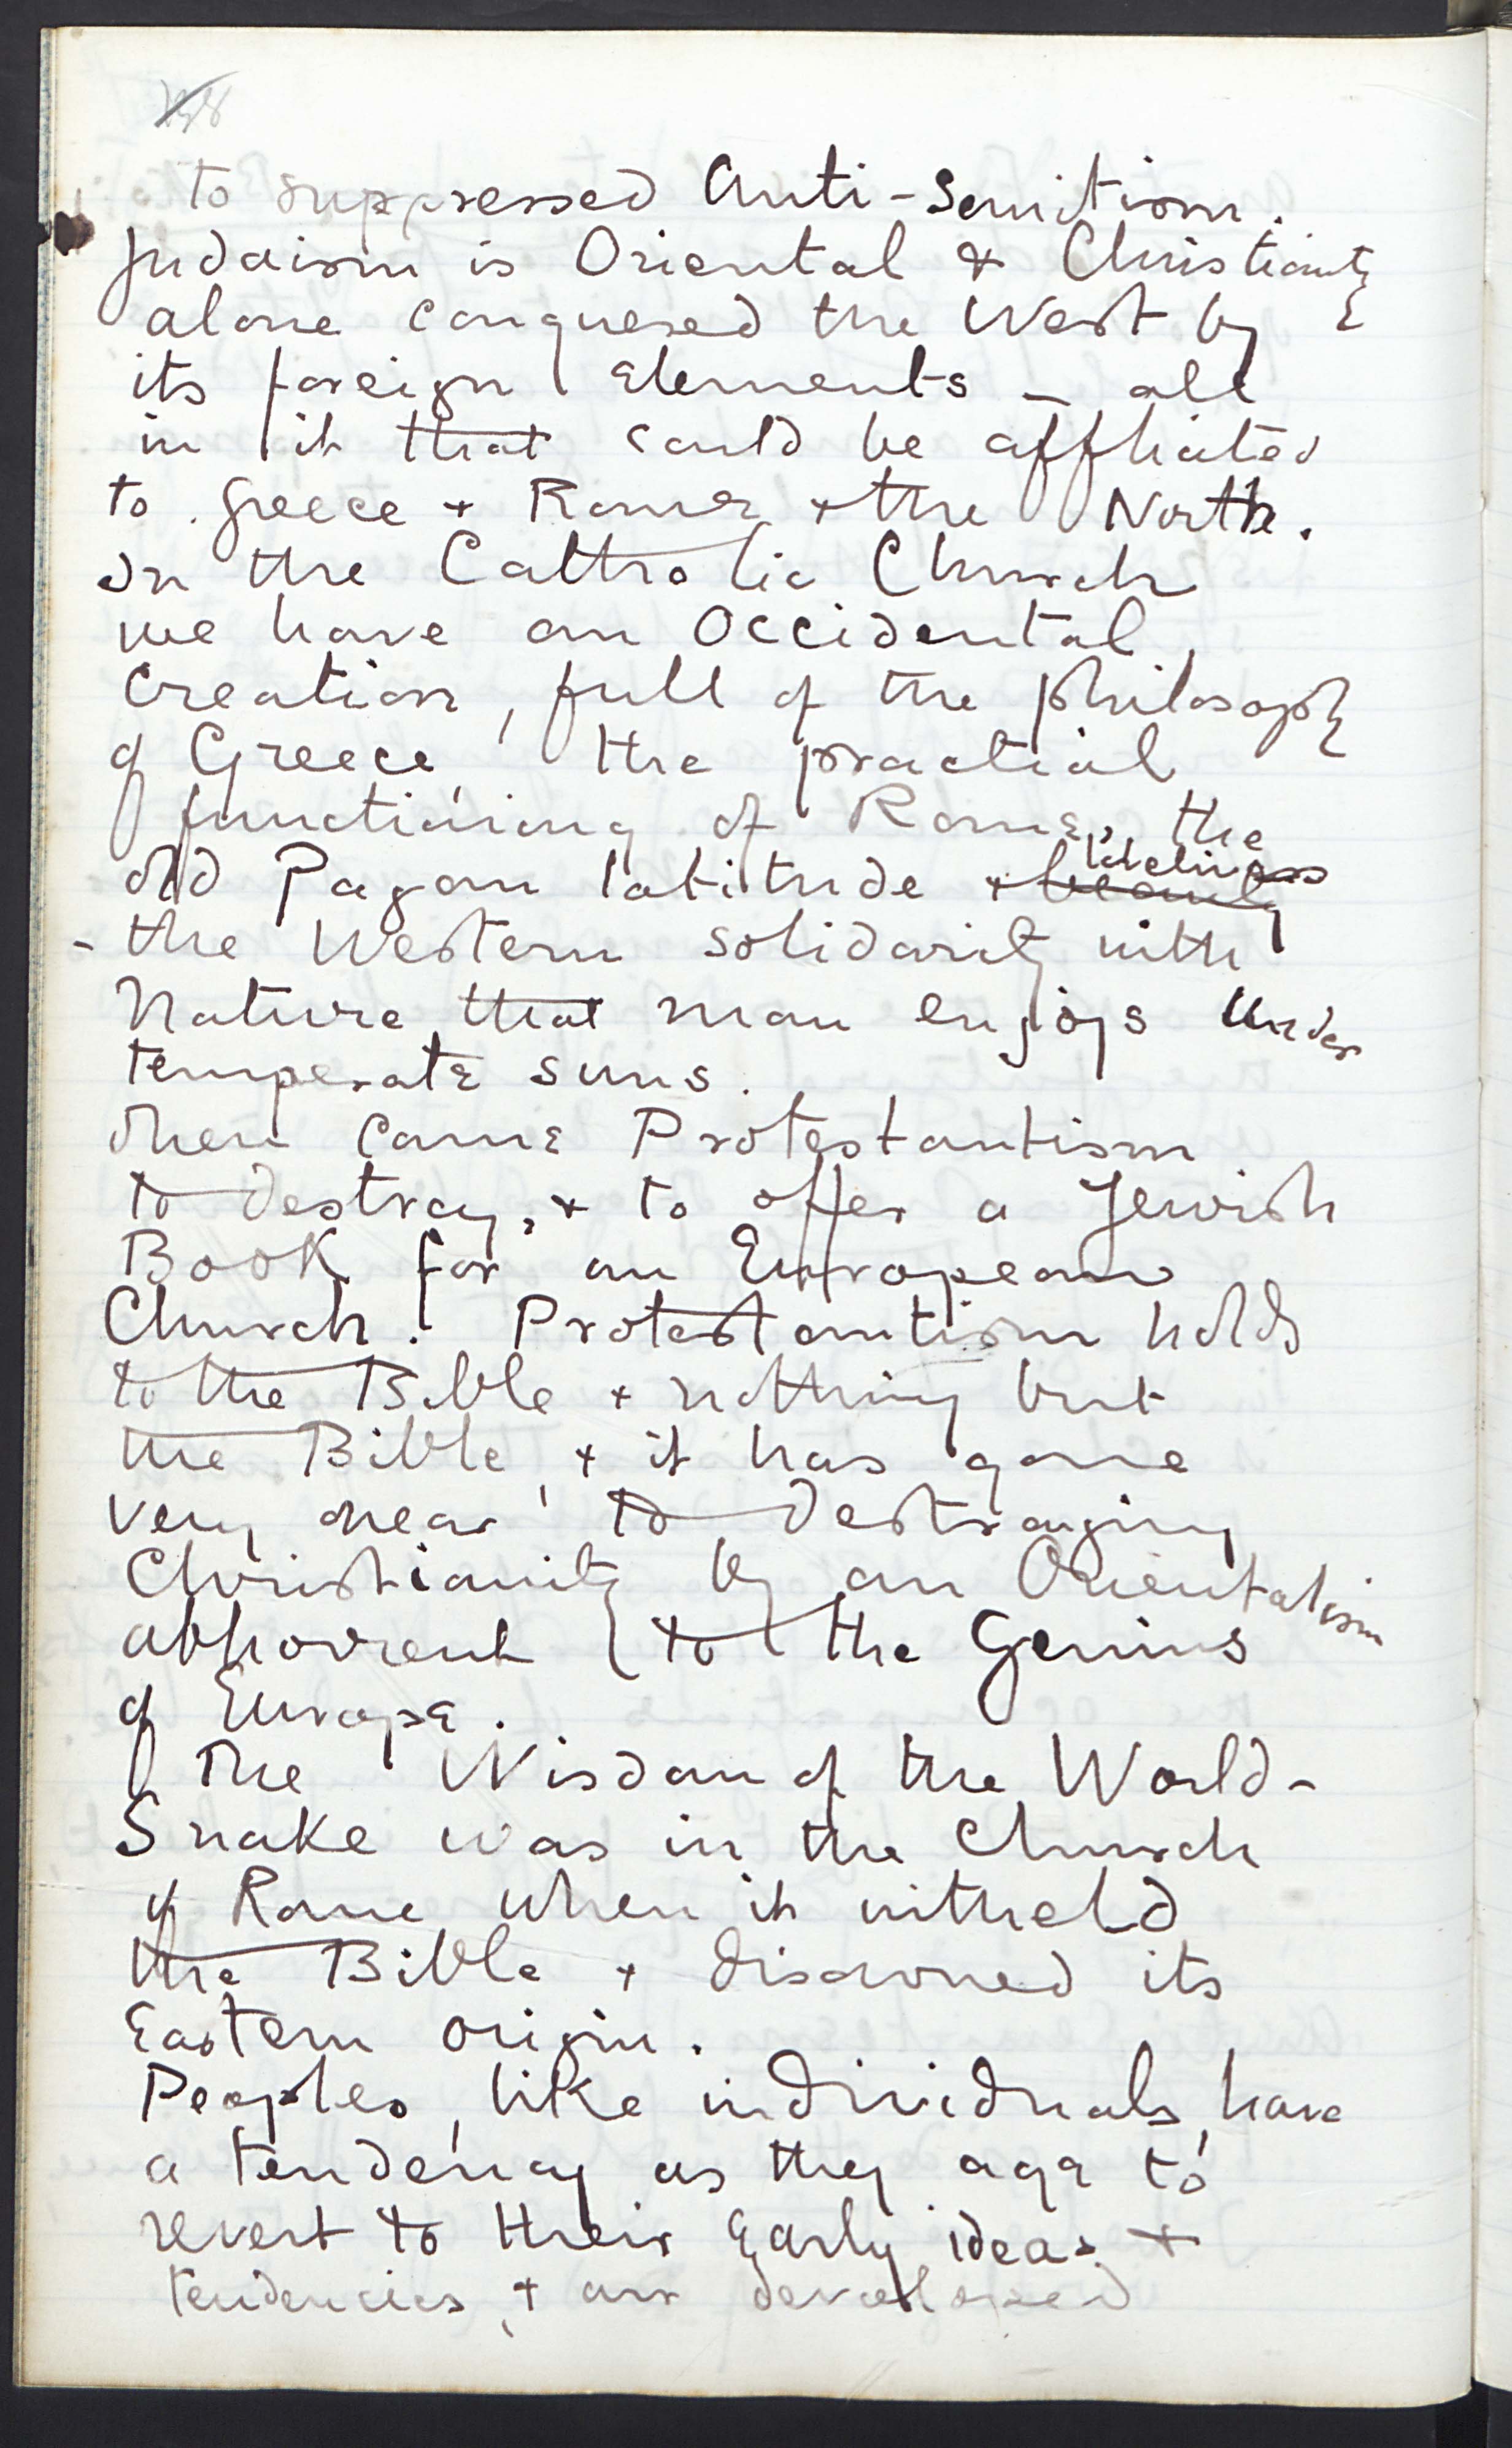 to suppressed Anti-Semitism.
Judaism is Oriental & Christianity
alone conquered the West by
its foreign Elements - all
in it that could be affiliated
to Greece + Rome + the North.
In the Catholic Church
we have an Occidental
Creation, full of the philosophy
of Greece, the practical
functioning of Rome, the
old Pagan latitude + beauty
- the Western solidarity with
Nature that man enjoys under
temperate suns.
Then came Protestantism
to destroy, + to offer a Jewish
Book for an European
Church. Protestantism holds
to the Bible + nothing but
the Bible, + it has gone
very near to destroying
Christianity by an Orientalism
abhorrent to the Genius
of Europe.
The Wisdom of the World-
Snake was in the Church
of Rome when it witheld
the Bible + disowned its
Eastern origin.
Peoples, like individuals, have
a tendency as they age to
revert to their Early ideas +
tendencies, + our developed